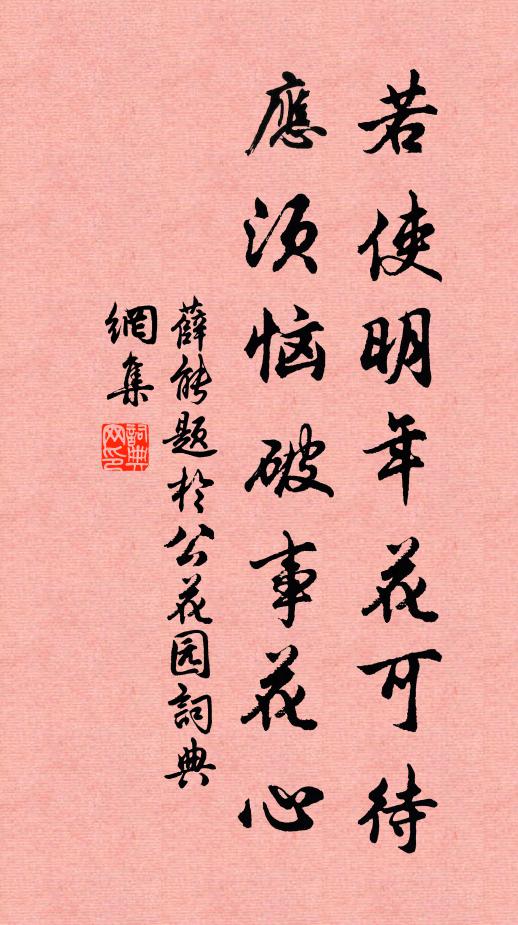 若使明年花可待
應须恼破事花心
薛能题於公花园詞典
網集
詞典
网印